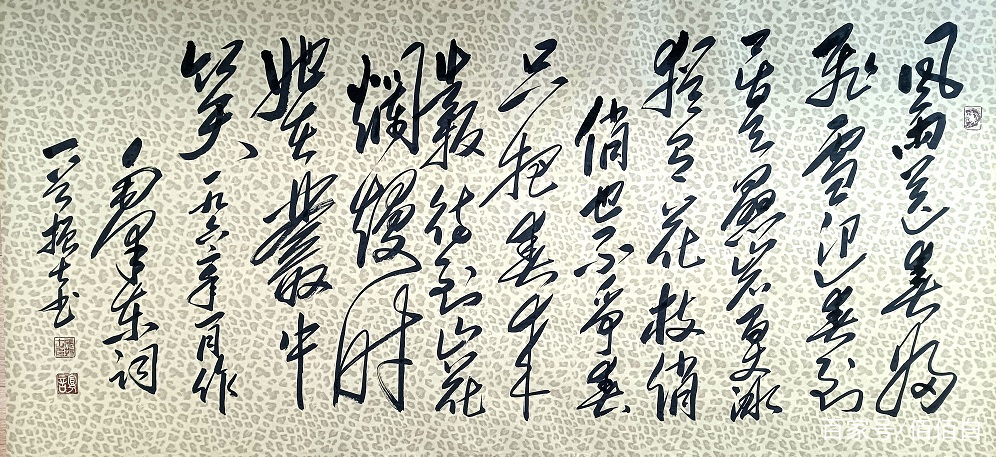 风雨送春归
飞雪迎春到
已是悬岩百丈冰
犹有花枝俏
俏也不争春
只把春来
报待到山花
烂熳时
她在丛中
笑 一九六一年 月作
毛泽东词
振 书